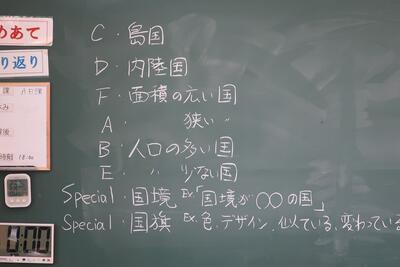 めあて
り返り
C・島国
D・内陸国
F・面積の広い国
A 〃 狭い 〃
B・人口の多い国
E・〃 少ない国
Special・国境 Ex.「国境が〇〇の国」
Special・国旗 Ex. 色、デザイン、似ている、変わっている